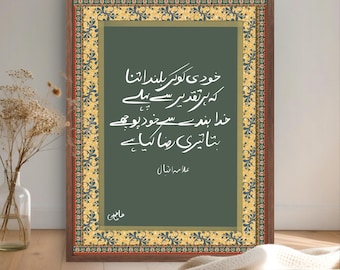 خودی کو کر بلند اتنا
کہ ہر تقدیر سے پہلے
خدا بندے سے خود پوچھے
بتا تیری رضا کیا ہے
علامہ اقبال